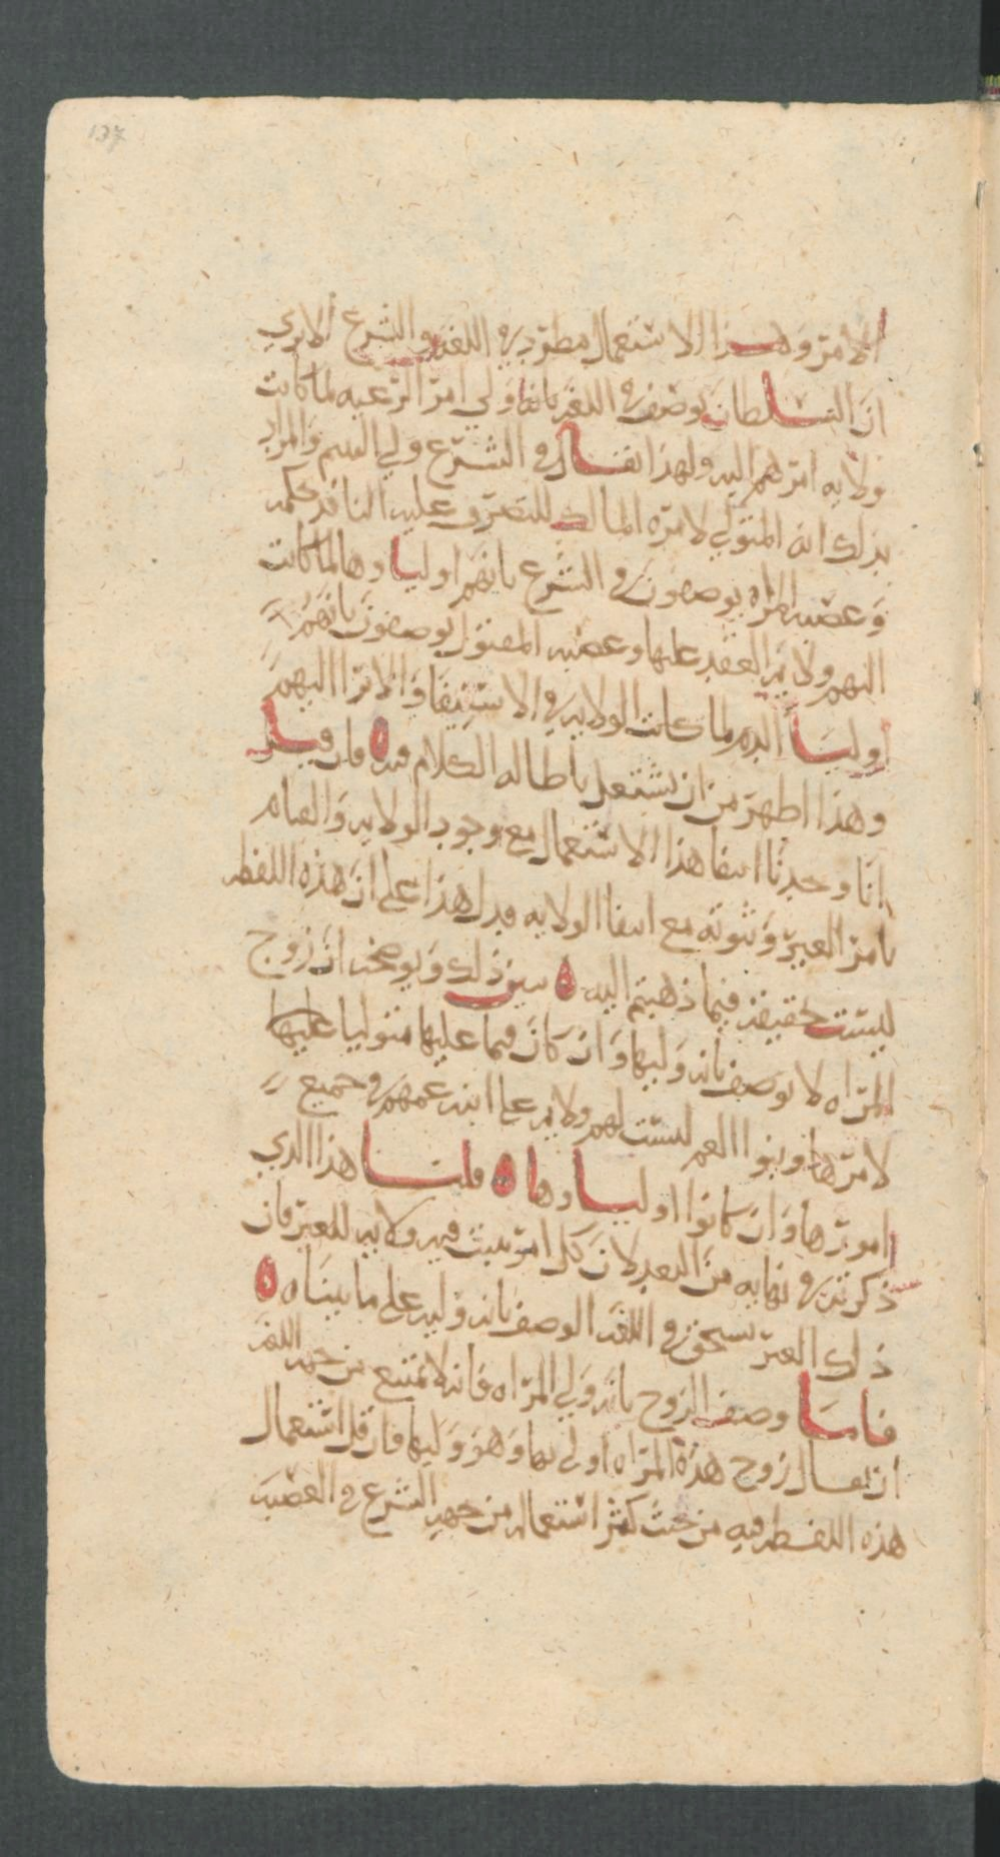 الامر وهذا الاستعمال مطرد في اللغه والشرع الا تري
ان السلطان يوصف في اللغه بانه ولي امر الرعيه لما كانت
ولايه امرهم اليه ولهذا يقال في الشرع ولي اليتيم والمراد
بذلك انه المتولي لامره المالك للتصرف عليه النافذ حكمه
وعصبه المراه يوصفون في الشرع بانهم اولياوها لما كانت
اليهم ولايه العقد عليها وعصبه المقتول يوصفون بانهم
اوليا الدم لما كانت الولايه في الاستيفا والابرا اليهم
وهذا اظهر من ان نشتغل باطاله الكلام فيه ه فان قيل
انا وجدنا انتفا هذا الاستعمال مع وجود الولايه والقيام
بامر الغير وثبوته مع انتفا الولايه فدل هذا على ان هذه اللفظه
ليست حقيقه فيما ذهبتم اليه ه يبين ذلك ويوضحه ان زوج
المراه لا يوصف بانه وليها وان كان قيما عليها متوليا عليها
لامرها وبنوا العم ليست لهم ولايه على ابنه عمهم في جميع
امورها وان كانوا اولياوها ه قلنا هذا الذي
ذكرته في نهايه من البعد لان كل امر يثبت فيه ولايه للغير فان
ذلك الغير يستحق في اللغه الوصف بانه وليه على ما بيناه ه
فاما وصف الزوج بانه ولي المراه فانه لا يمتنع من جهه اللغه
ان يقال زوج هذه المراه اولى بها وهو وليها فان قل استعمال
هذه اللفظه فيه من حيث كثر استعماله من جهه الشرع في العصبه